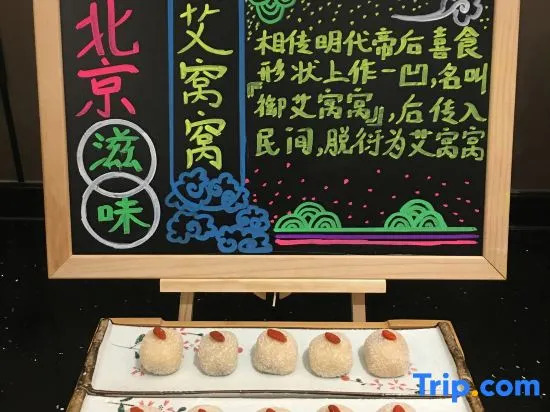 北京
滋味
艾窝窝
相传明代帝后喜食
形状上作一凹,名叫
『御艾窝窝』,后传入
民间,脱衍为艾窝窝
Trip.com